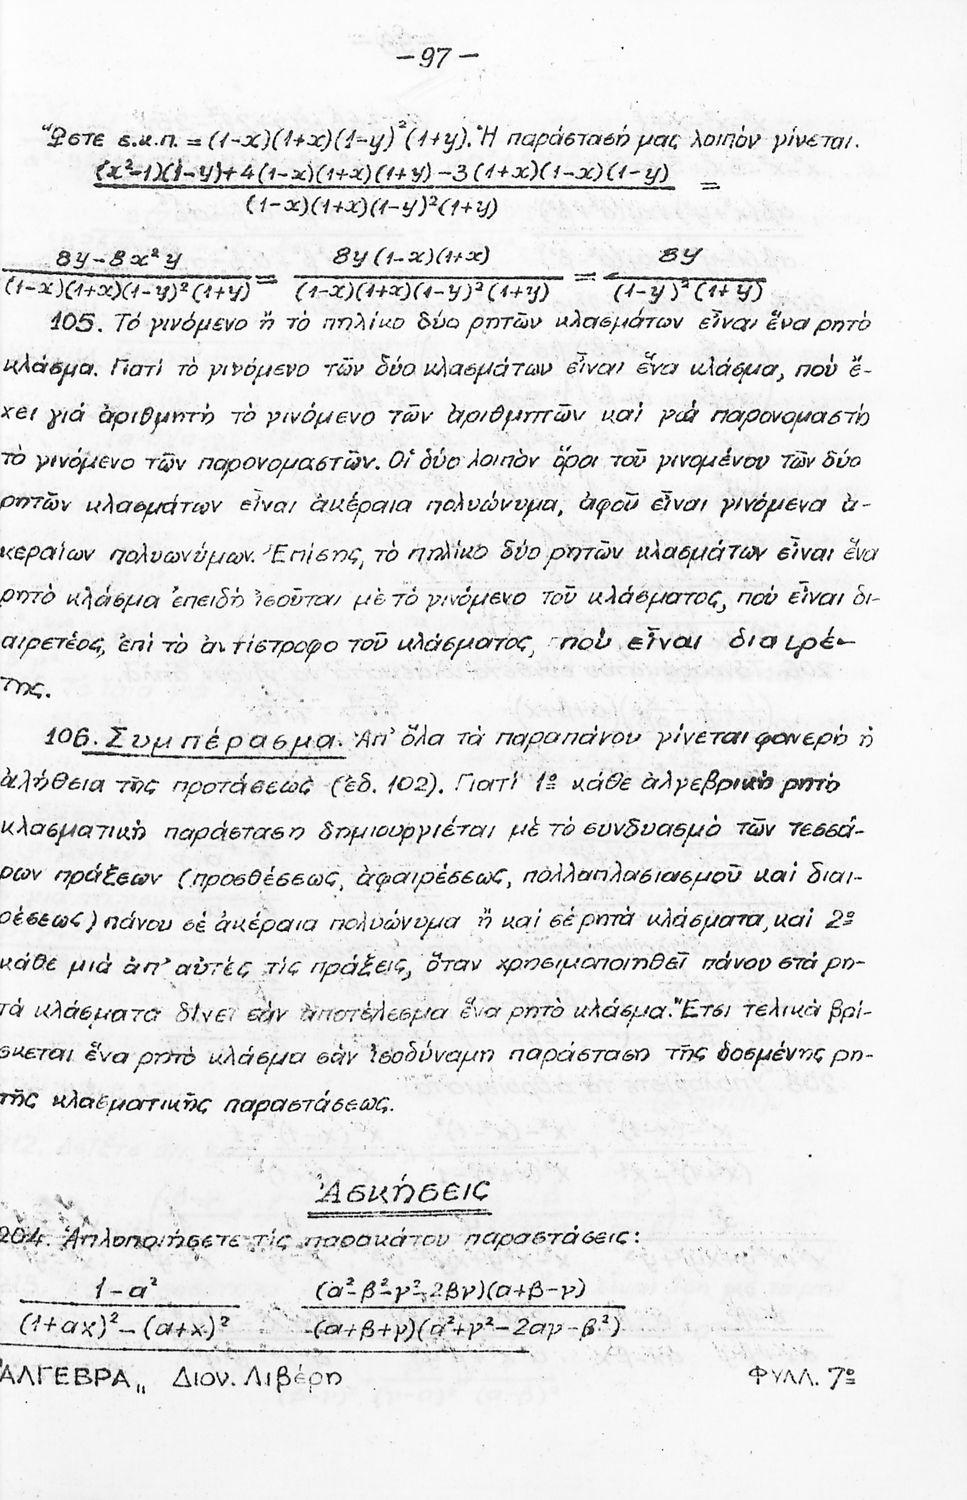 -97-
Ὥστε ε.κ.π. = (1-x)(1+x)(1-y)²(1+y). Ἡ παράστασή μας λοιπὸν γίνεται.
(x²-1)(1-y)+4(1-x)(1+x)(1+y)-3(1+x)(1-x)(1-y) =
(1-x)(1+x)(1-y)²(1+y)
8y-8x²y = 8y(1-x)(1+x) = 8y
(1-x)(1+x)(1-y)²(1+y) (1-x)(1+x)(1-y)²(1+y) (1-y)²(1+y)
105. Τό γινόμενο ἤ τὸ πηλίκο δύο ρητῶν κλασμάτων εἶναι ἕνα ρητὸ
κλάσμα. Γιατί τὸ γινόμενο τῶν δύο κλασμάτων εἶναι ἕνα κλάσμα, πού ἔ-
χει γιά ἀριθμητὴ τὸ γινόμενο τῶν ἀριθμητῶν καὶ γιὰ παρονομαστὴ
τὸ γινόμενο τῶν παρονομαστῶν. Οἱ δύο λοιπὸν ὅροι τοῦ γινομένου τῶν δύο
ρητῶν κλασμάτων εἶναι ἀκέραια πολυώνυμα, ἀφοῦ εἶναι γινόμενα ἀ-
κεραίων πολυωνύμων. Ἐπίσης, τὸ πηλίκο δύο ρητῶν κλασμάτων εἶναι ἕνα
ρητὸ κλάσμα ἐπειδὴ ἰσοῦται μὲ τὸ γινόμενο τοῦ κλάσματος, ποὺ εἶναι δι-
αιρετέος, ἐπὶ τὸ ἀντίστροφο τοῦ κλάσματος, ποὺ εἶναι διαιρέ-
της.
106. Συμπέρασμα. Ἀπ' ὅλα τὰ παραπάνου γίνεται φανερὸ ἡ
ἀλήθεια τῆς προτάσεως (ἐδ. 102). Γιατί 1º κάθε ἀλγεβρικὴ ρητὸ
κλασματικὴ παράσταση δημιουργιέται μὲ τὸ συνδυασμὸ τῶν τεσσά-
ρων πράξεων (προσθέσεως, ἀφαιρέσεως, πολλαπλασιασμοῦ καὶ διαι-
ρέσεως) πάνου σὲ ἀκέραια πολυώνυμα ἤ καί σέ ρητὰ κλάσματα, καὶ 2º
κάθε μιὰ ἀπ' αὐτὲς τὶς πράξεις, ὅταν χρησιμοποιηθεῖ πάνου στὰ ρη-
τὰ κλάσματα δίνει σὰν ἀποτέλεσμα ἕνα ρητὸ κλάσμα. Ἔτσι τελικὰ βρί-
σκεται ἕνα ρητὸ κλάσμα σὰν ἰσοδύναμη παράσταση τῆς δοσμένης ρη-
τῆς κλασματικῆς παραστάσεως.
Ἀσκήσεις
204. Ἁπλοποιήσετε τὶς παρακάτου παραστάσεις:
1-α² (α²-β²-γ²-2βγ)(α+β-γ)
(1+αx)²-(α+x)² (α+β+γ)(α²+γ²-2αγ-β²)
ΑΛΓΕΒΡΑ„ Διον. Λιβέρη ΦΥΛΛ. 7º